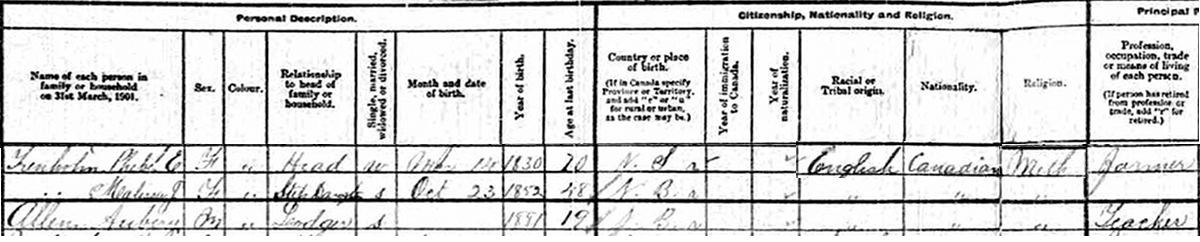 Personal Description.
Citizenship, Nationality and Religion.
Principal
Name of each person in family or household on 31st March, 1901.
Sex.
Colour.
Relationship to head of family or household.
Single, married, widowed or divorced.
Month and date of birth.
Year of birth.
Age at last birthday.
Country or place of birth.
(If in Canada specify Province or Territory, and add "r" or "u" for rural or urban, as the case may be.)
Year of immigration to Canada.
Year of naturalization.
Racial or Tribal origin.
Nationality.
Religion.
Profession, occupation, trade or means of living of each person.
(If person has retired from profession or trade, add "r" for retired.)
Trenholm E F " Head w Nov 14 1830 70 N. S r English Canadian Meth Farmer
" F " Step Daughter s Oct 23 1852 48 N. B r " " "
Allen M " Lodger s 1881 19 N. B r " " " Teacher